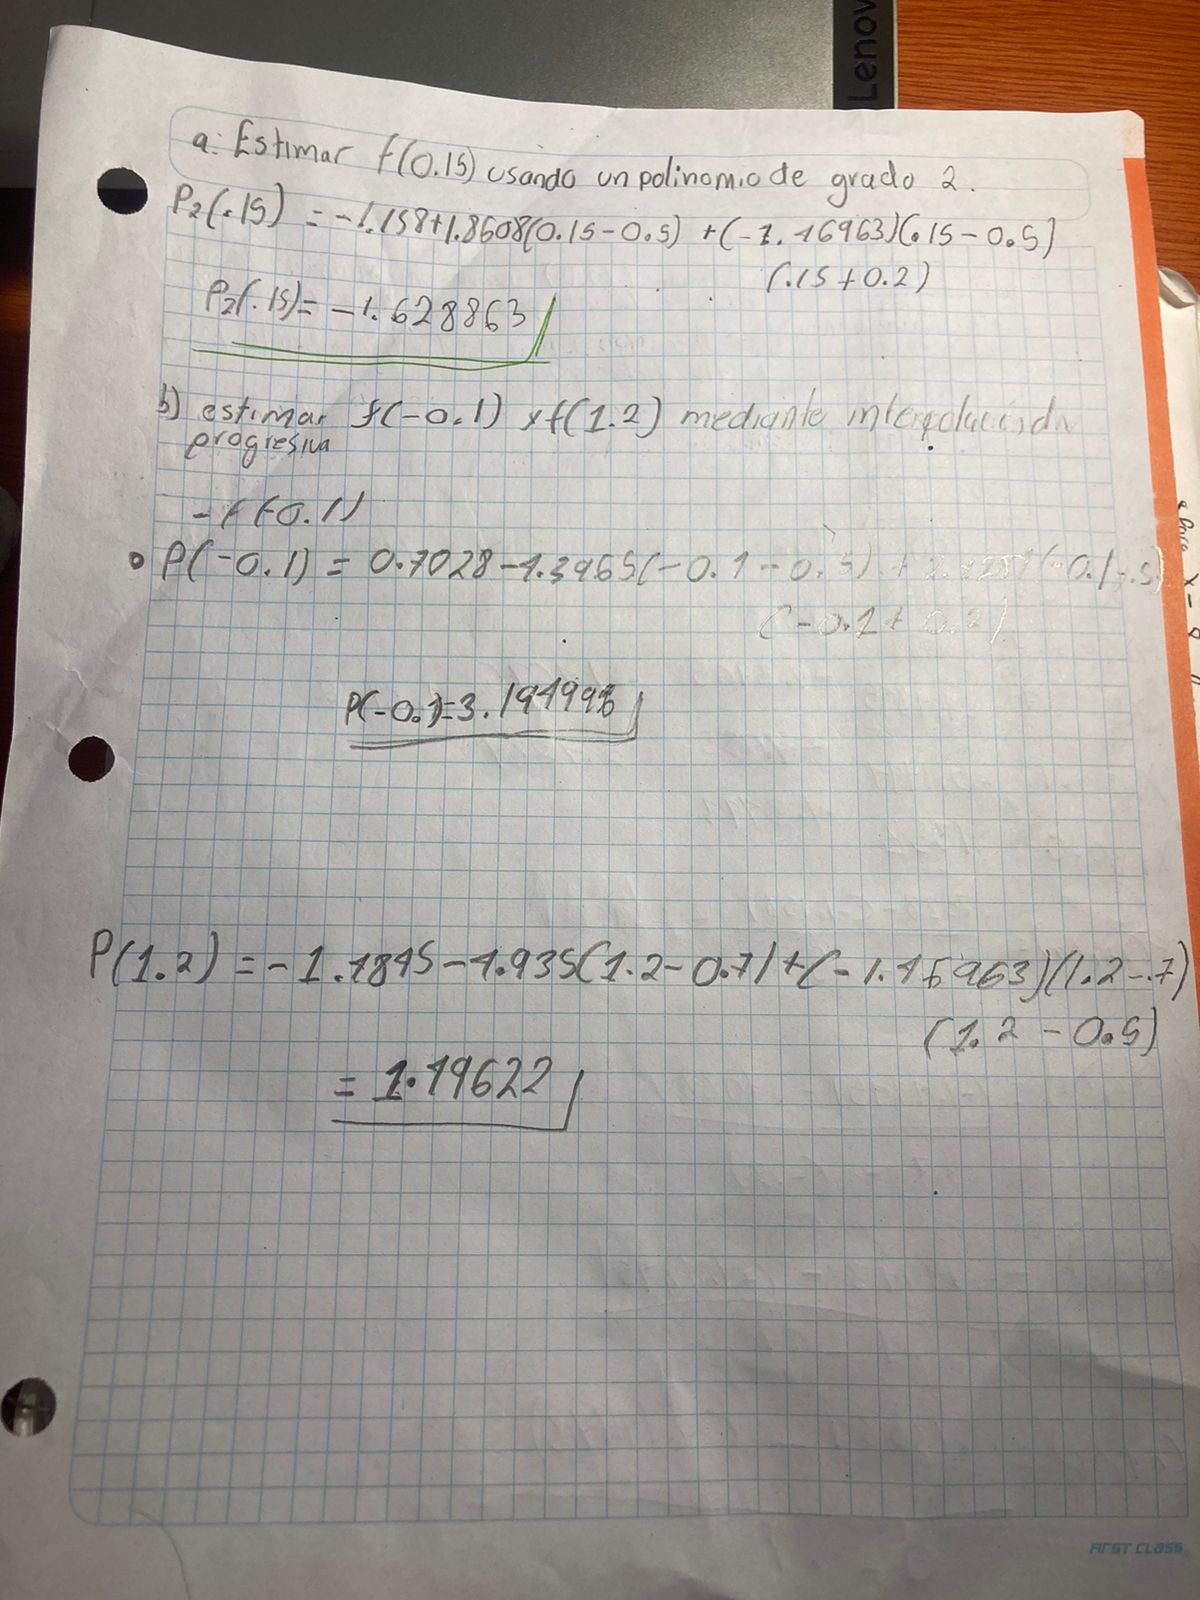 Lenov
a. Estimar f(0.15) usando un polinomio de grado 2.
P2(.15) = -1.158+1.8608(0.15-0.5) +(-1.16963)(.15-0.5)
(.15+0.2)
P2(.15)= -1.628863
b) estimar f(-0.1) y f(1.2) mediante interpolación
progresiva
- f(-0.1)
P(-0.1) = 0.7028-4.3965(-0.1-0.5) + (-0.1-.5)
(-0.1+0.2)
P(-0.1)=3.194998
P(1.2) = -1.1845-4.935(1.2-0.7)+(-1.16963)(1.2-.7)
(1.2-0.5)
= 1.19622
FIRST CLASS